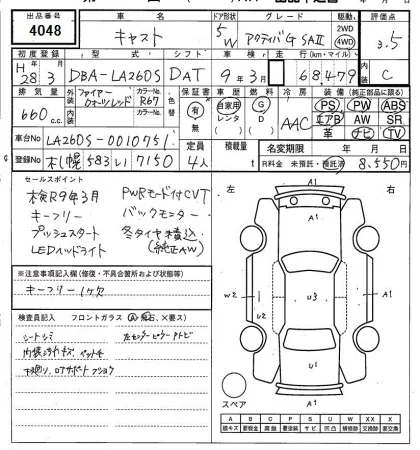 出品番号 車名 ドア形状 グレード 駆動 評価点
4048 キャスト 5 W アクティバG SAⅡ 2WD 4WD 3.5
初度登録 型式 シフト 車検 走行(km・マイル) 内装
H28 3 DBA-LA260S DAT 9年3月 68,479 C
排気量 外装色 ファイヤークォーツレッド カラーNo. R67 色替 保証書 車歴 燃料 冷房 装備(純正部品に限る)
660 c.c. 内装色 カラーNo. 有 無 自家用 レンタ G D AAC PS PW ABS
エアB AW SR
革 ナビ TV
車台No LA260S-0010751 定員 積載量 名変期限 年 月 日
登録No 札幌 583 い 7150 4人 t R料金 未預託・預託済 8,550円
セールスポイント
本検R9年3月 PWRモード付CVT
キーフリー バックモニター
プッシュスタート 冬タイヤ積込
LEDヘッドライト (純正AW)
※注意事項記入欄(修復・不具合箇所および状態等)
キーフリー1ヶ欠
検査員記入 フロントガラス (A飛石、X要ス)
シートシミ
左 右
A1
A1
W2 1 U3
U2
U1
A1
スペア
A B C P S U W X XX
線キズ 要鈑金 腐食 要塗装 サビ 凹凸 補修跡 交換跡 要交換